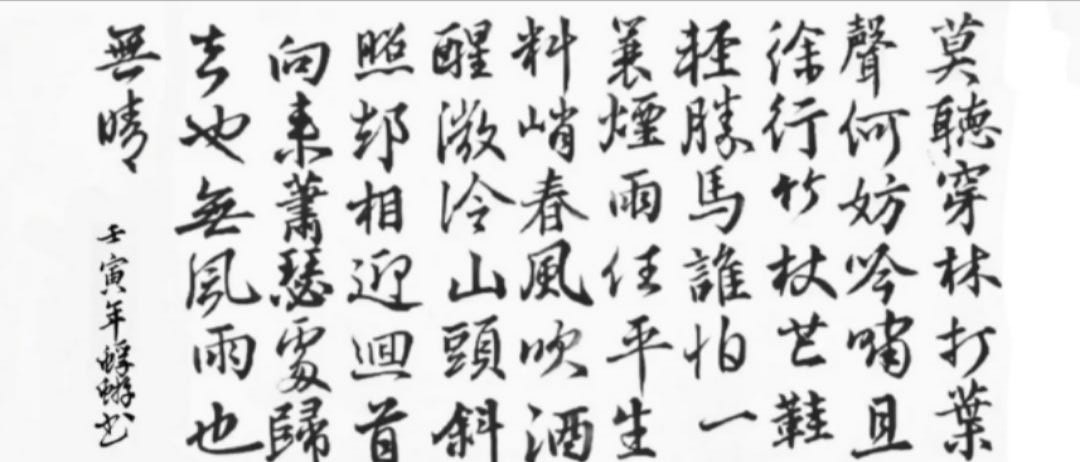 莫聽穿林打葉
聲何妨吟嘯且
徐行竹杖芒鞋
輕勝馬誰怕一
蓑煙雨任平生
料峭春風吹酒
醒微冷山頭斜
照却相迎迴首
向來蕭瑟處歸
去也無風雨也
無晴
壬寅年蜉蝣书